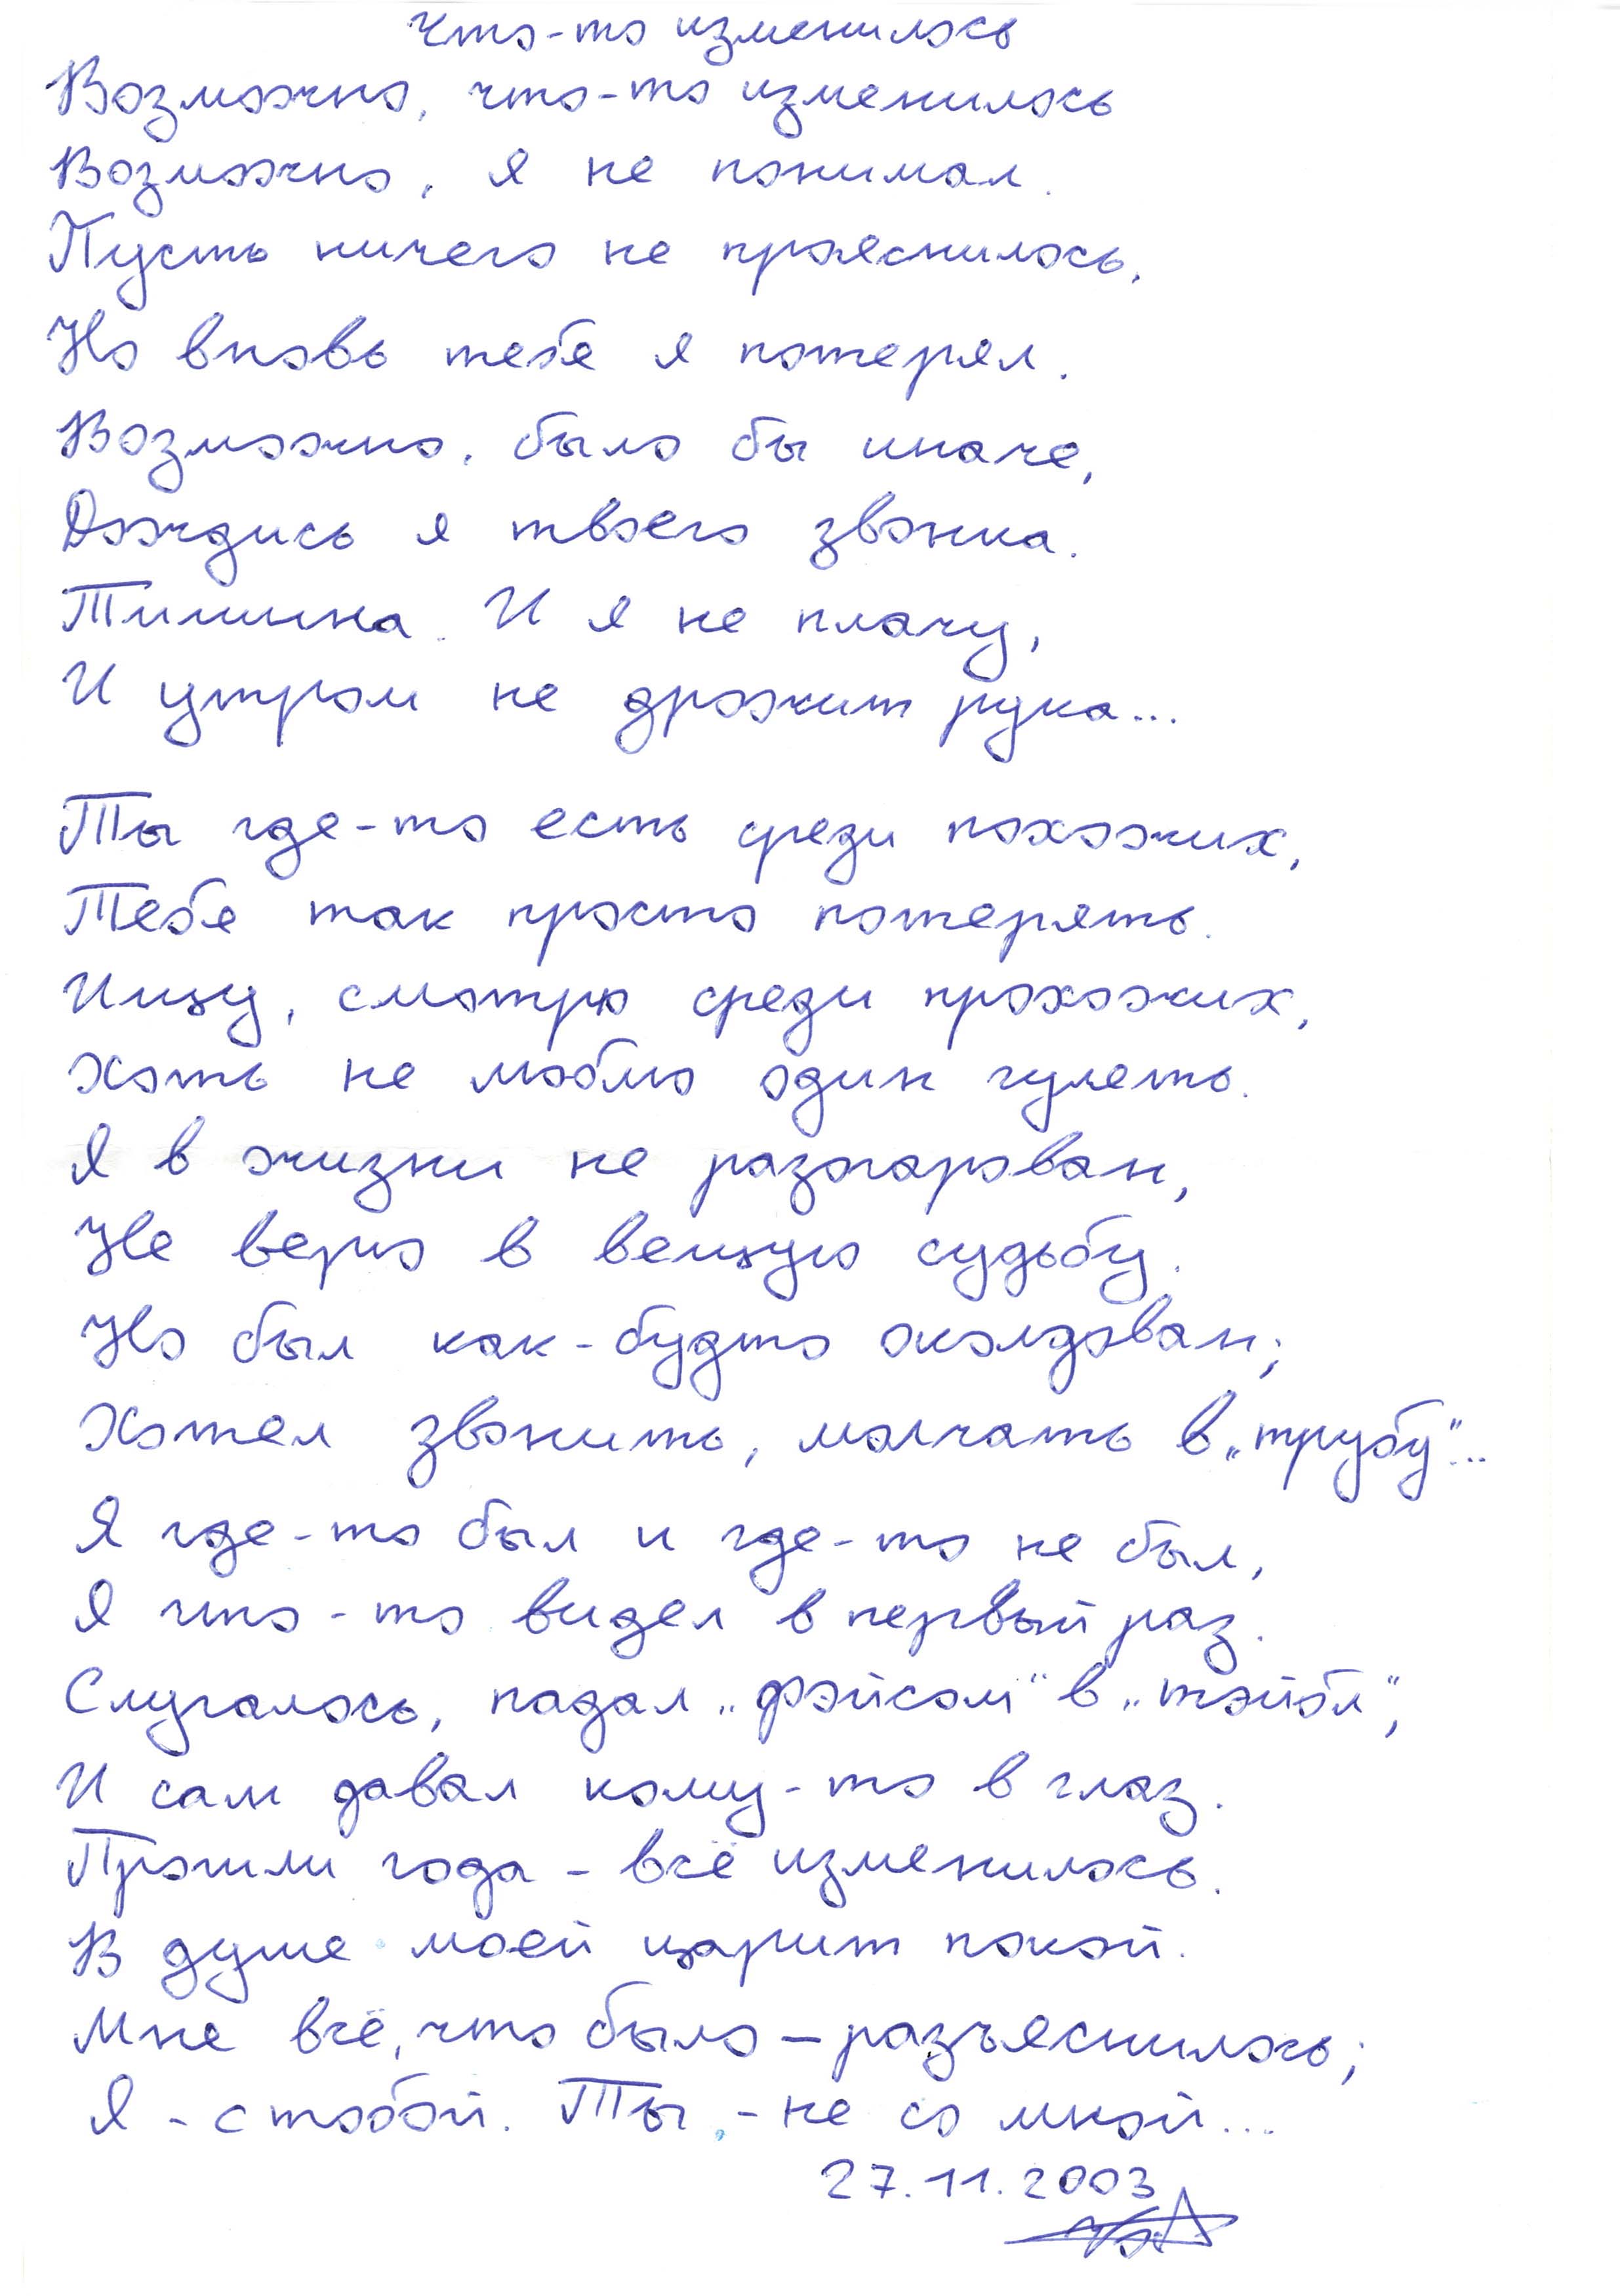 Что-то изменилось
Возможно, что-то изменилось
Возможно, я не понимал.
Пусть ничего не прояснилось,
Но вновь тебя я потерял.
Возможно, было бы иначе,
Дождись я твоего звонка.
Тишина. И я не плачу,
И утром не дрожит рука...
Ты где-то есть среди похожих,
Тебя так просто потерять.
Ищу, смотрю среди прохожих,
Хоть не люблю один гулять.
Я в жизни не разочарован,
Не верю в вещую судьбу.
Но был как-будто околдован;
Хотел звонить, молчать в „трубу"...
Я где-то был и где-то не был,
Я что-то видел в первый раз.
Случалось, падал „фэйсом" в „тэйбл",
И сам давал кому-то в глаз.
Прошли года - всё изменилось.
В душе моей царит покой.
Мне всё, что было – разъяснилось;
Я - с тобой. Ты, - не со мной...
27.11.2003